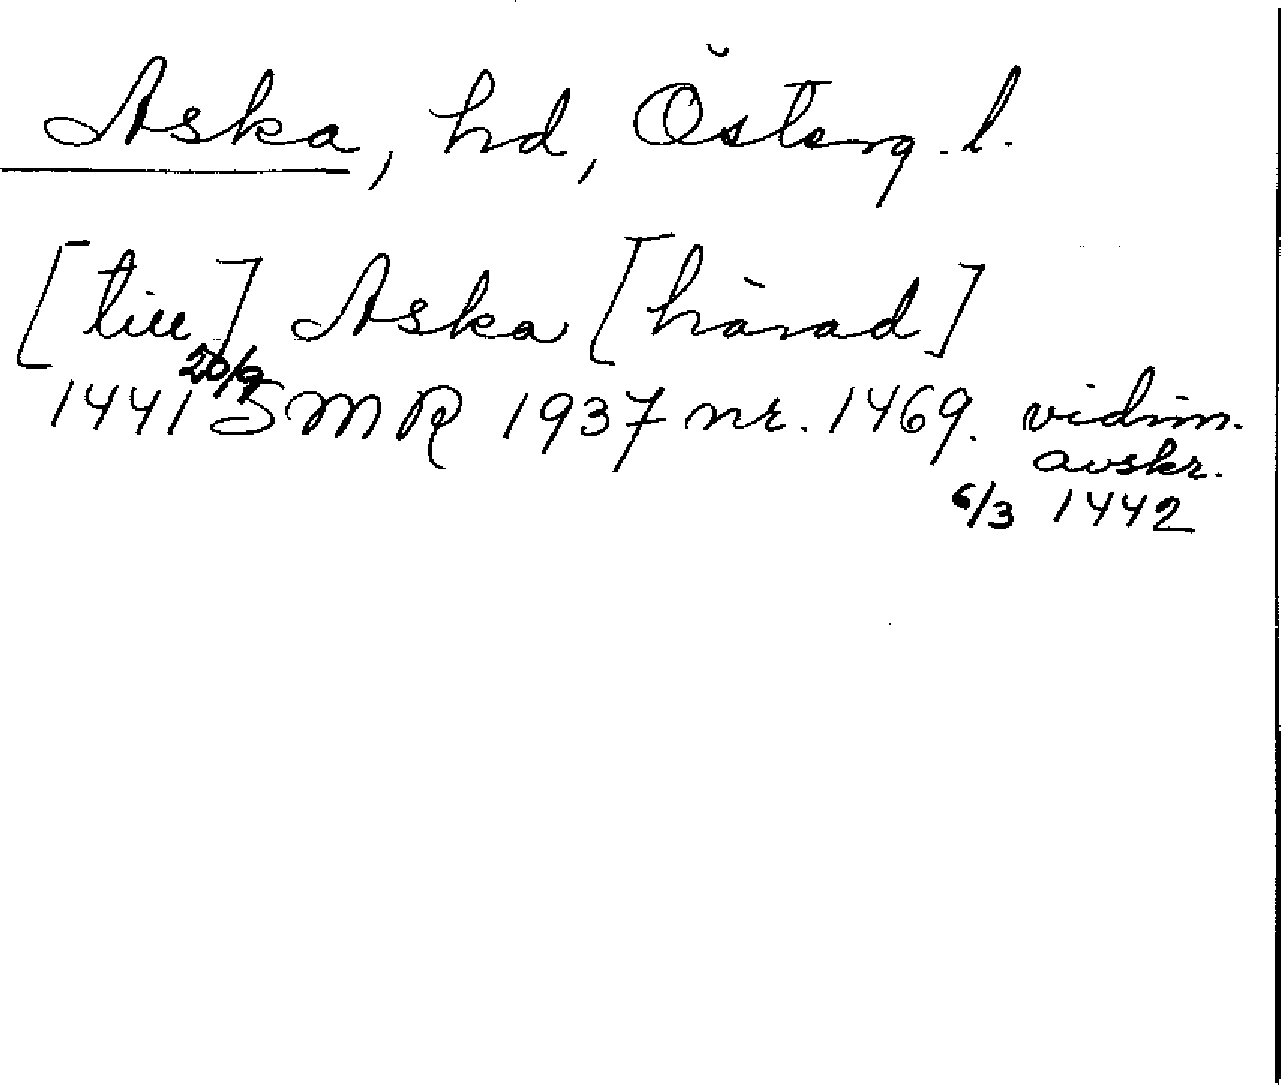 Aska, hd, Österg. l.
[till] Aska [härad]
1441 20/9 SMR 1937 nr. 1469. vidim.
avskr.
6/3 1442